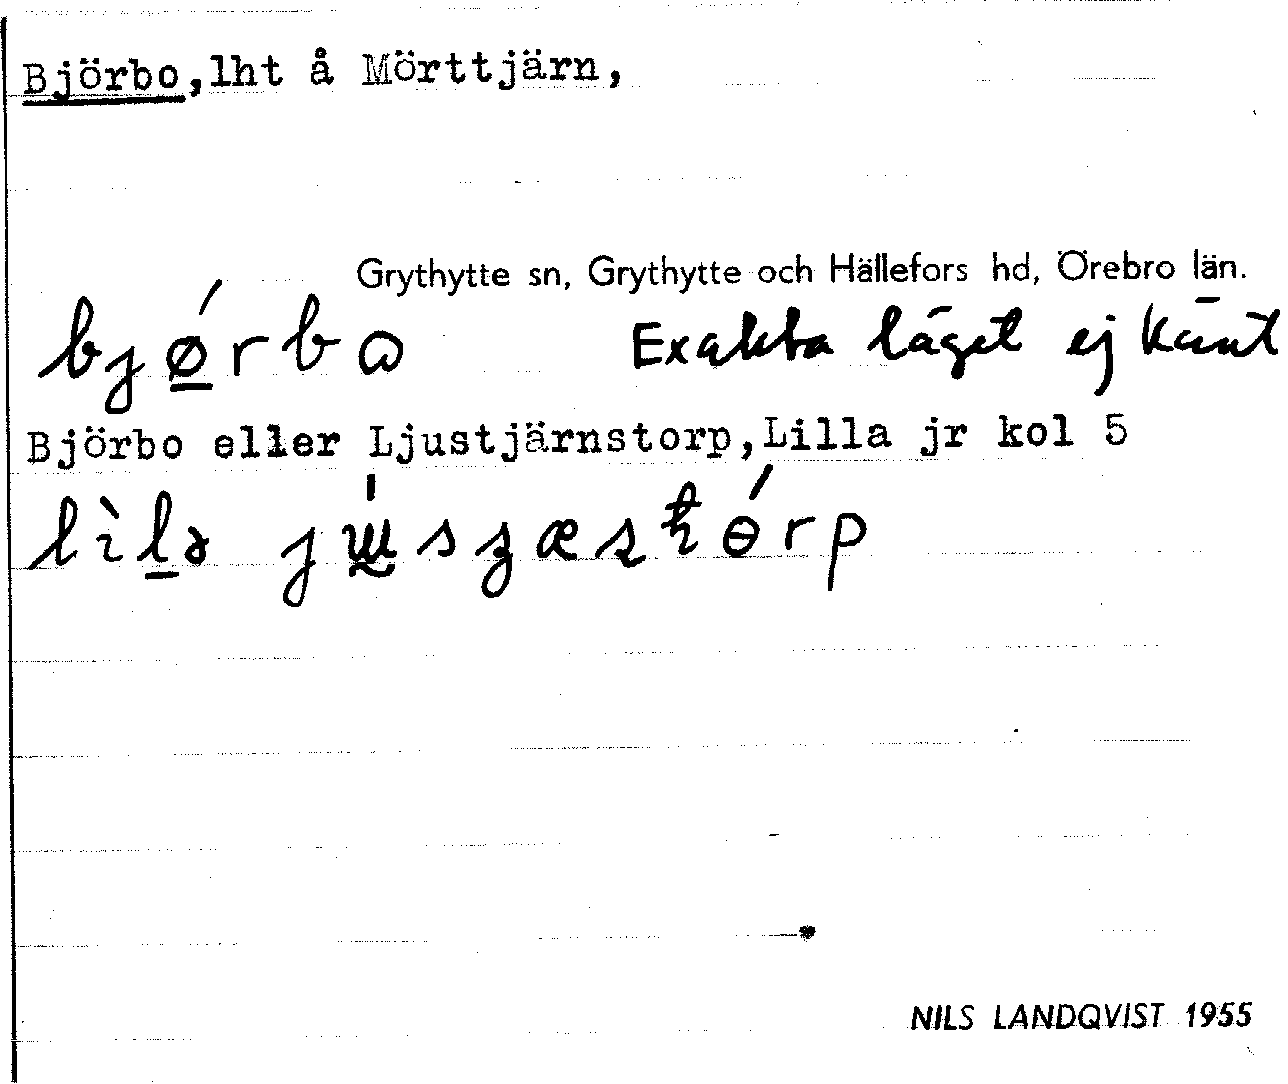 Björbo,lht å Mörttjärn,
Grythytte sn, Grythytte och Hällefors hd, Örebro län.
Exakta läget ej känt
Björbo eller Ljustjärnstorp,Lilla jr kol 5
NILS LANDQVIST 1955